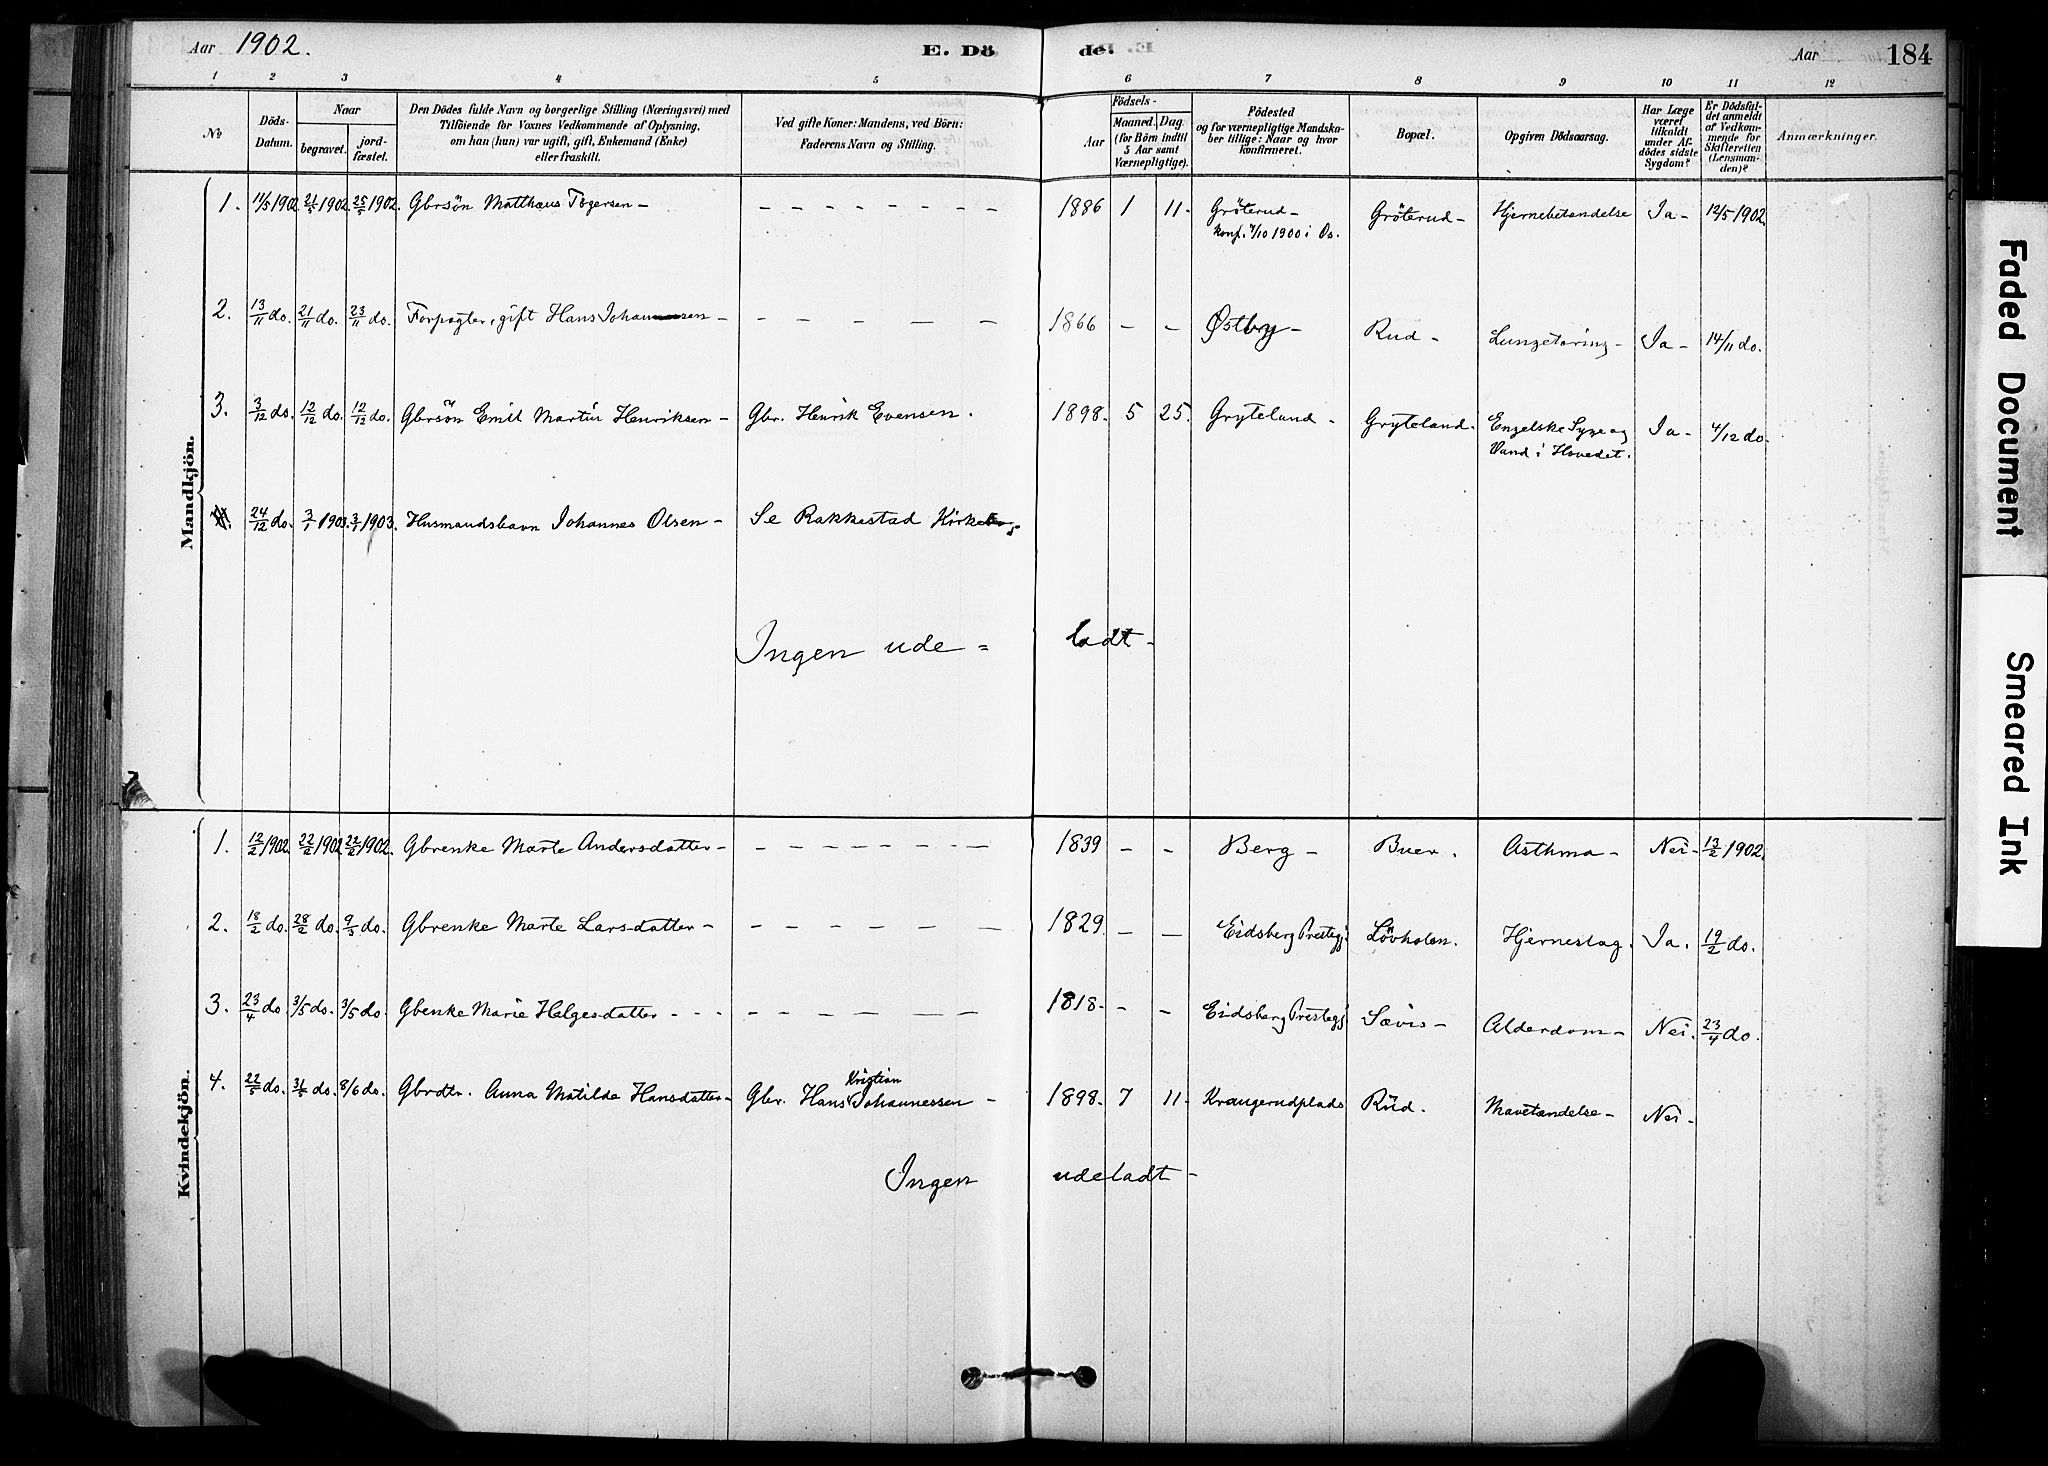 Aar 1902. E. Dö de. Aar 184
1 2 3 4 5 6 7 8 9 10 11 12
No Döds-Datum. Naar begravet. jord-fæstet. Den Dödes fulde Navn og borgerlige Stilling (Næringsvei) med Tilföiende for Voxnes Vedkommende af Oplysning, om han (hun) var ugift, gift, Enkemand (Enke) eller fraskilt. Ved gifte Koner: Mandens, ved Börn: Faderens Navn og Stilling. Aar Födsels- Maaned. Dag. (for Börn indtil 5 Aar samt Værnepligtige). Födested og for værnepligtige Mandska-ber tillige: Naar og hvor konfirmeret. Bopæl. Opgiven Dödsaarsag. Har Læge været tilkaldt under Af-dödes sidste Sygdom? Er Dödsfal-det anmeldt af Vedkom-mende for Skifteretten (Lensman-den)? Anmærkninger.
Mandkjön.
1. 11/5 1902 21/5 1902 25/5 1902. Gbrsön Matthæus Togersen - - - - - - - - 1886 1 11. Gröterud - Gröterud - Hjernebetændelse Ja - 12/5 1902.
konf. 7/10 1900 i Os.
2. 13/11 do. 21/11 do. 23/11 do. Forpagter, gift Hans Johannessen - - - - - - 1866 - - Østby - Rud - Lungetæring - Ja - 14/11 do.
3. 3/12 do. 12/12 do. 12/12 do. Gbrsön Emil Martin Henriksen - Gbr. Henrik Evensen. 1898. 5 25. Gryteland - Gryteland. Engelske Syge og Ja - 4/12 do.
Vand i Hovedet.
4. 24/12 do. 3/1 1903. 3/1 1903. Husmandsbarn Johannes Olsen - Se Rakkestad Kirkebog
Ingen ude = ladt -
Kvindekjön.
1. 12/2 1902 22/2 1902 22/2 1902. Gbrenke Marte Andersdatter - - - - - - - - 1839 - - Berg - Buer. Asthma - Nei - 13/2 1902.
2. 18/2 do. 28/2 do. 9/3 do. Gbrenke Marte Larsdatter - - - - - - - 1829 - - Eidsberg Prestegj. Lövholen. Hjerneslag. Ja. 19/2 do.
3. 23/4 do. 3/5 do. 3/5 do. Gbenke Marie Helgesdatter - - - - - - - - 1818 - - - Eidsberg Prestegj. Sævis - Alderdom - Nei. 23/4 do.
4. 22/5 do. 31/5 do. 8/6 do. Gbrdtr. Anna Matilde Hansdatter - Gbr. Hans Kristian Johannessen - 1898. 7 11. Krangerudplads Rud. Mavetændelse - Nei -
Ingen udeladt -
Faded Document
Smeared Ink